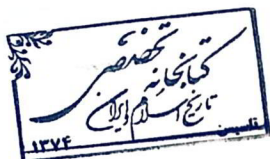 کتابخانه تخصصی
تاریخ اسلام و ایران
تأسیس
۱۳۷۴